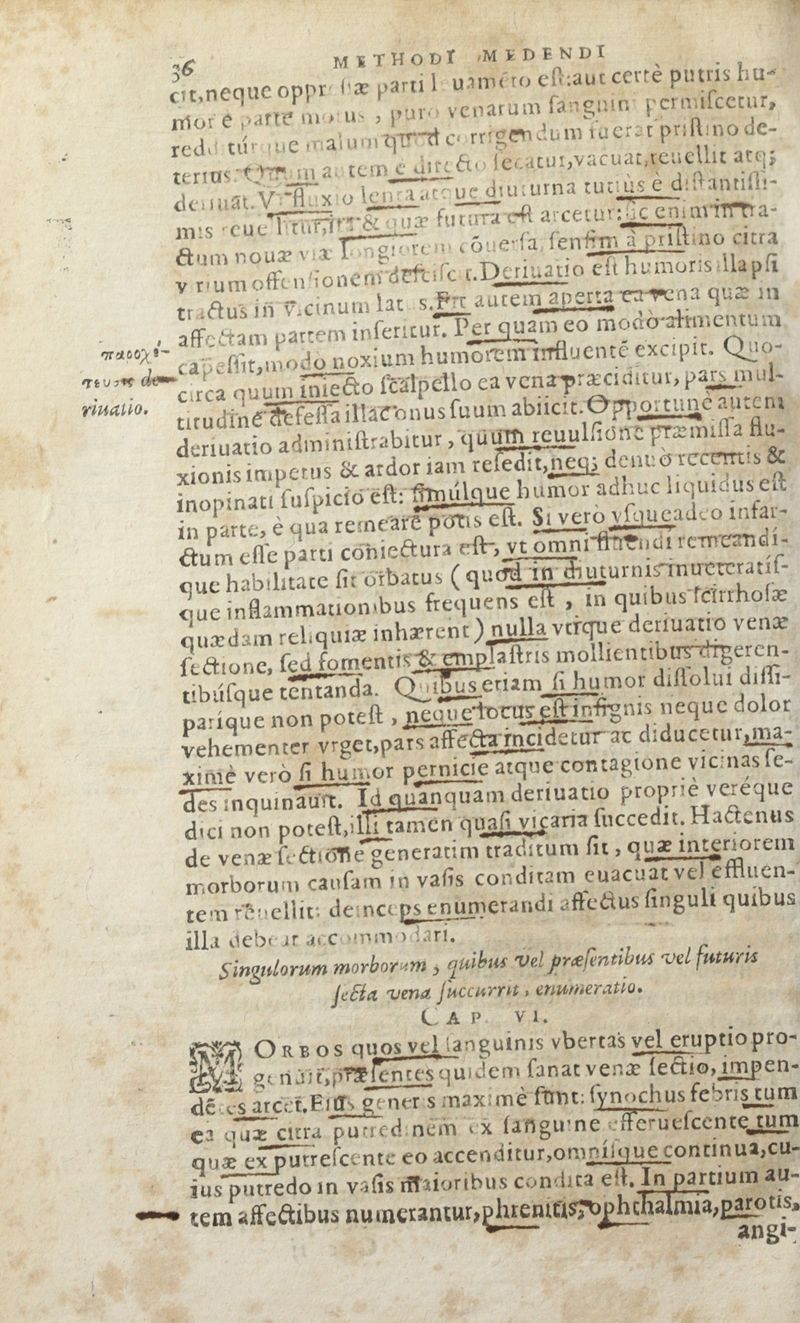 36 METHODI MEDENDI
cit,neque parti est:aut certè putris hu-
more è parte , puro venarum permisceetur,
malum corrigendum fuerat pristino de-
è directo secatur,vacuat,reuellit atq;
lenta atque diuturna tutius è distantissi-
mis & quæ futura est arcetur:
ctum nouæ sensim à pristino citra
Deriuatio est humoris illapsi
in vicinum aperta ea vena quæ in
παροχέ- affectam partem inseritur. Per quam eo modo alimentum
capessit,modo noxium humorem influentē excipit. Quo-
τευσις de- circa quum iniecto scalpello ea vena præciditur, pars mul-
riuatio. titudinē defessa illac onus suum abiicit. Opportunè autem
deriuatio administrabitur , quum reuulsione præmissa flu-
xionis impetus & ardor iam resedit,neq; denuò recentis &
inopinati suspicio est: simulque humor adhuc liquidus est
in parte, è qua remeare potis est. Si verò vsqueadeo infar-
ctum esse parti coniectura est, vt omni remeandi-
que habilitate sit orbatus ( quod in diuturnis inueteratis-
que inflammationibus frequens est , in quibus scirrhosæ
quædam reliquiæ inhærent ) nulla vtique deriuatio venæ
sectione, sed fomentis & emplastris mollientibus digeren-
tibúsque tentanda. Quibus etiam si humor dissolui dissi-
parique non potest , neque locus est insignis neque dolor
vehementer vrget,pars affecta incidetur ac diducetur,ma-
ximè verò si humor pernicie atque contagione vicinas se-
des inquinauit. Id quanquam deriuatio propriè veréque
dici non potest,illi tamen quasi vicaria succedit. Hactenus
de venæ sectione generatim traditum sit , quæ interiorem
morborum causam in vasis conditam euacuat vel effluen-
tem reuellit: deinceps enumerandi affectus singuli quibus
illa debeat accommodari.
Singulorum morborum , quibus vel præsentibus vel futuris
secta vena succurrit , enumeratio.
CAP. VI.
MORBOS quos vel sanguinis vbertas vel eruptio pro-
genuit,præsentes quidem sanat venæ sectio,impen-
dētes arcet. Eius generis maximè sunt: synochus febris tum
ea quæ citra putredinem ex sanguine efferuescente,tum
quæ ex putrescente eo accenditur,omnisque continua,cu-
ius putredo in vasis maioribus condita est. In partium au-
tem affectibus numerantur,phrenitis, ophthalmia,parotis,
angi-